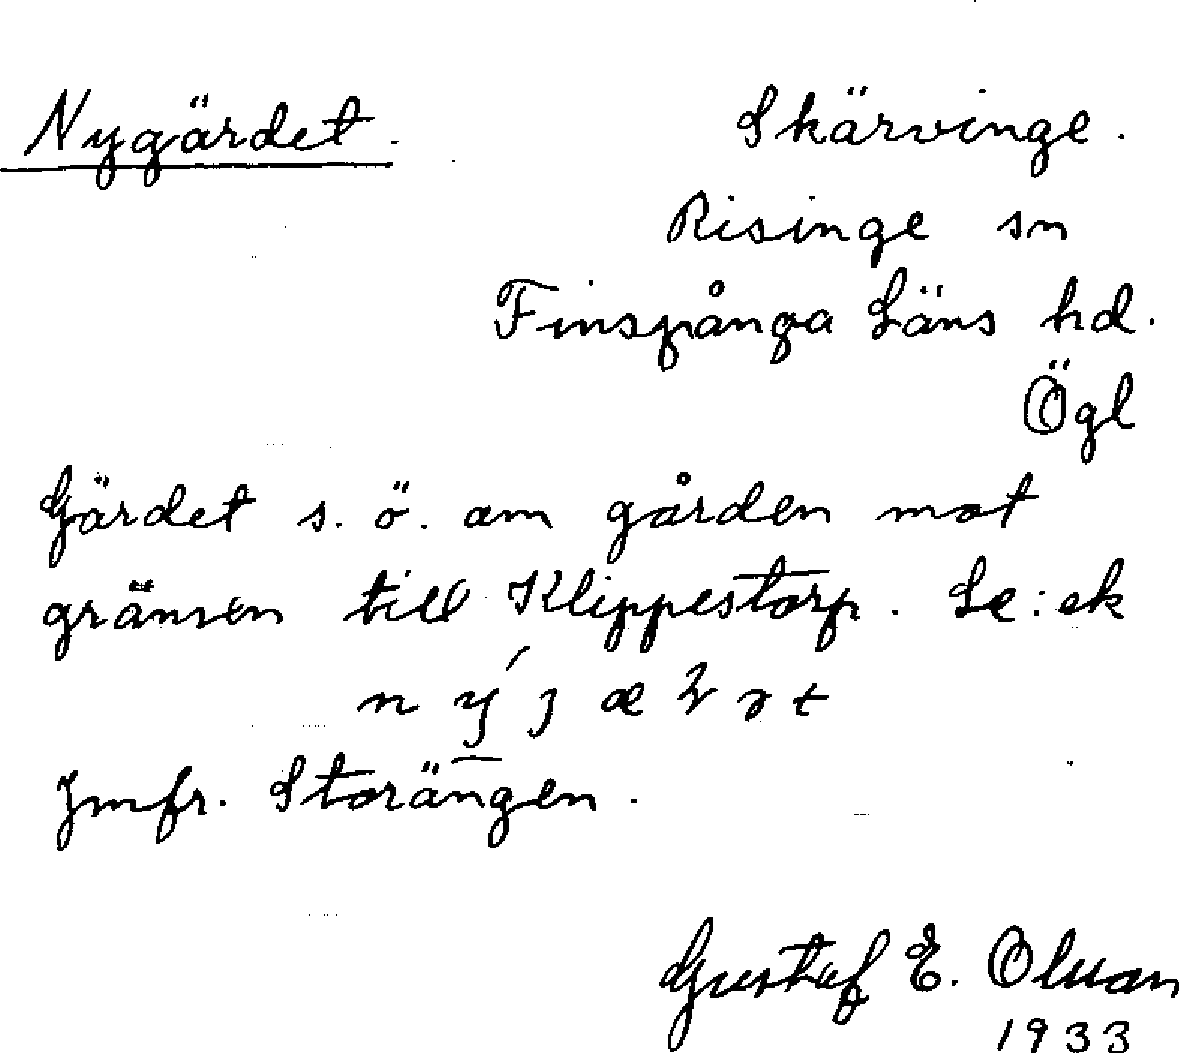 Nygärdet. Skärvinge.
Risinge sn
Finspånga Läns hd.
Ögl
Gärdet s. ö. om gården mot
gränsen till Klippestorp. Se: ek
Jmfr. Storängen.
Gustaf E. Olsson
1933